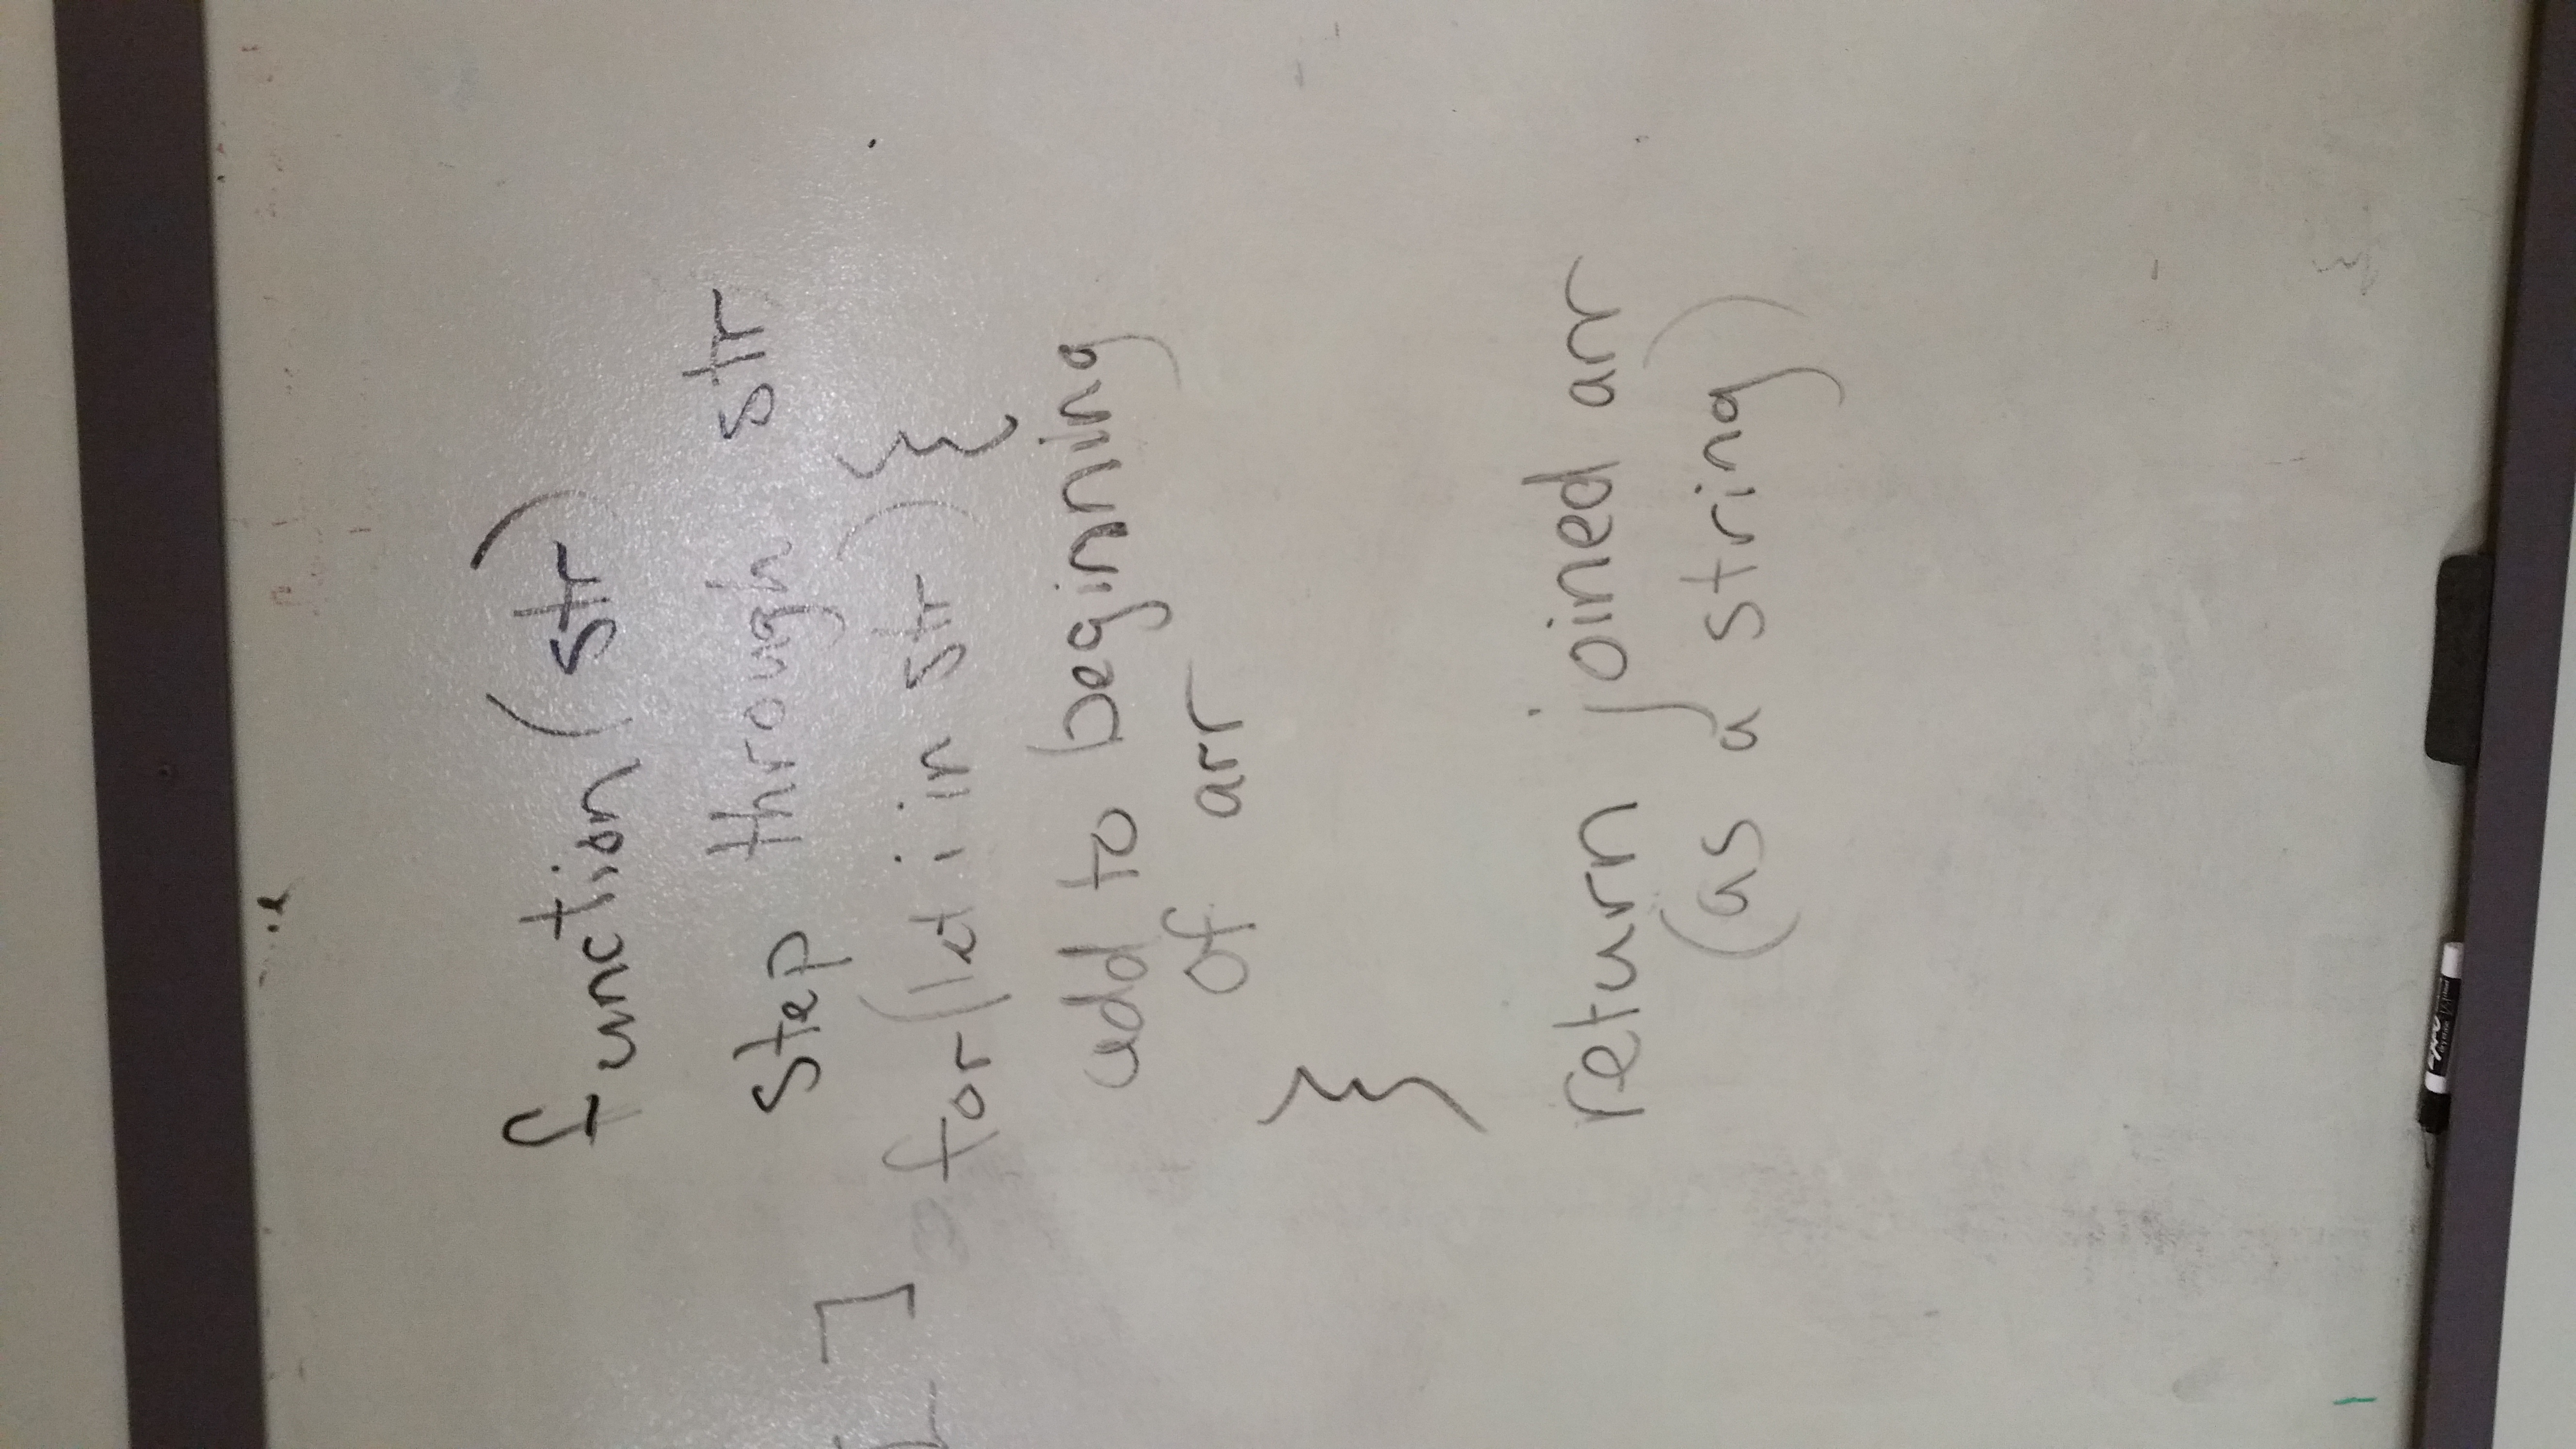 function(str)
step through str
[ ]
for(let i in str){
add to beginning
of arr
}
return joined arr
(as a string)
EXPO